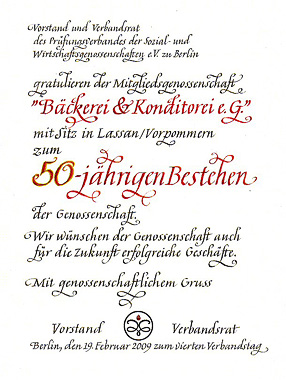 Vorstand und Verbandsrat
des Prüfungsverbandes der Sozial- und
Wirtschaftsgenossenschaften e.V. zu Berlin
gratulieren der Mitgliedsgenossenschaft
"Bäckerei & Konditorei e.G."
mit Sitz in Lassan/Vorpommern
zum
50-jährigen Bestehen
der Genossenschaft.
Wir wünschen der Genossenschaft auch
für die Zukunft erfolgreiche Geschäfte.
Mit genossenschaftlichem Gruss
Vorstand Verbandsrat
Berlin, den 19. Februar 2009 zum vierten Verbandstag